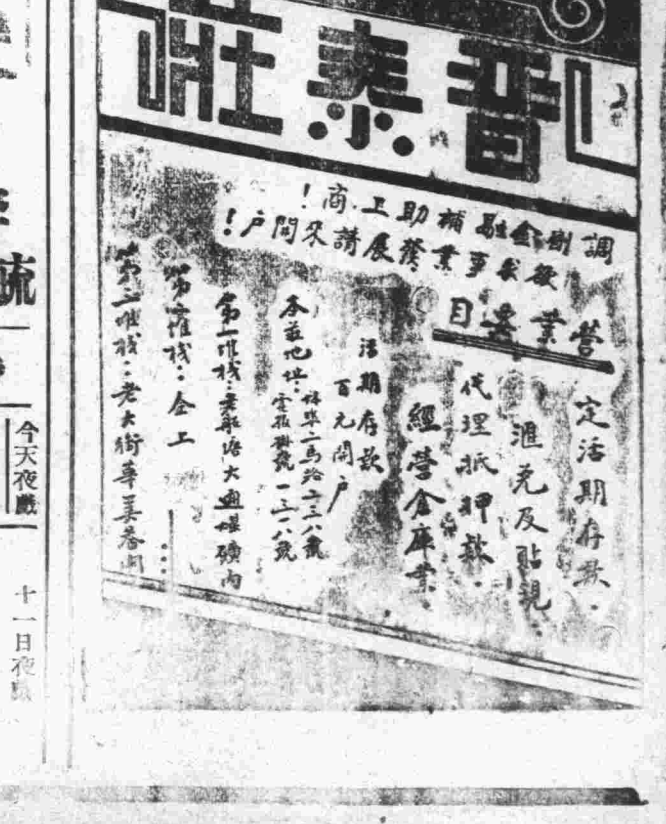 普泰莊
調劑金融補助工商！
欲求事業發展請來開戶！
營業目
定活期存款.
滙兌及貼現.
代理抵押款.
經營倉庫業.
活期存款
百元開戶
本莊地址：蚌埠二馬路二三八號
電報掛號 一三一八號
第一堆栈：老船塘大通煤礦内
第二堆栈：仝上
第三堆栈：老大街華美巷内
今天夜戲
十一日夜